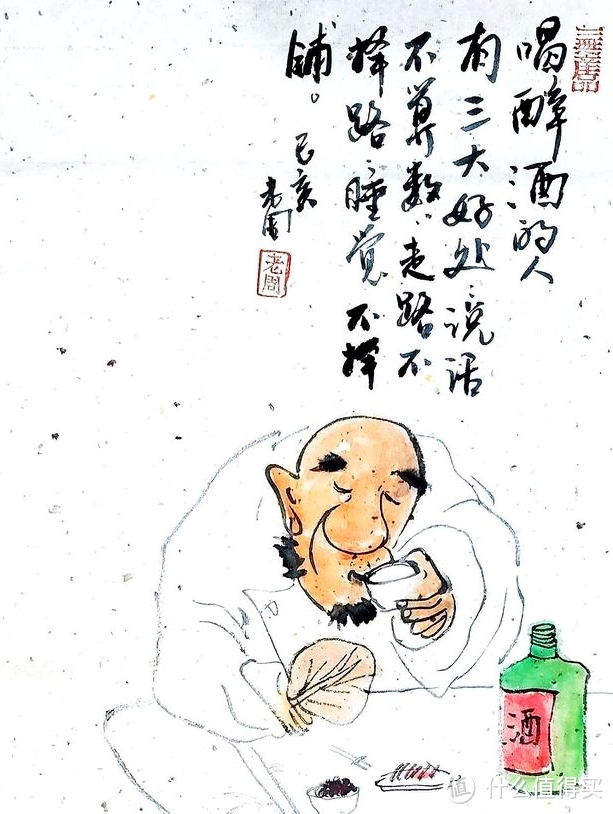 三無產品
喝醉酒的人
有三大好处、说话
不算数、走路不
择路、睡觉不择
铺。
己亥
老周
老周
酒
值 什么值得买